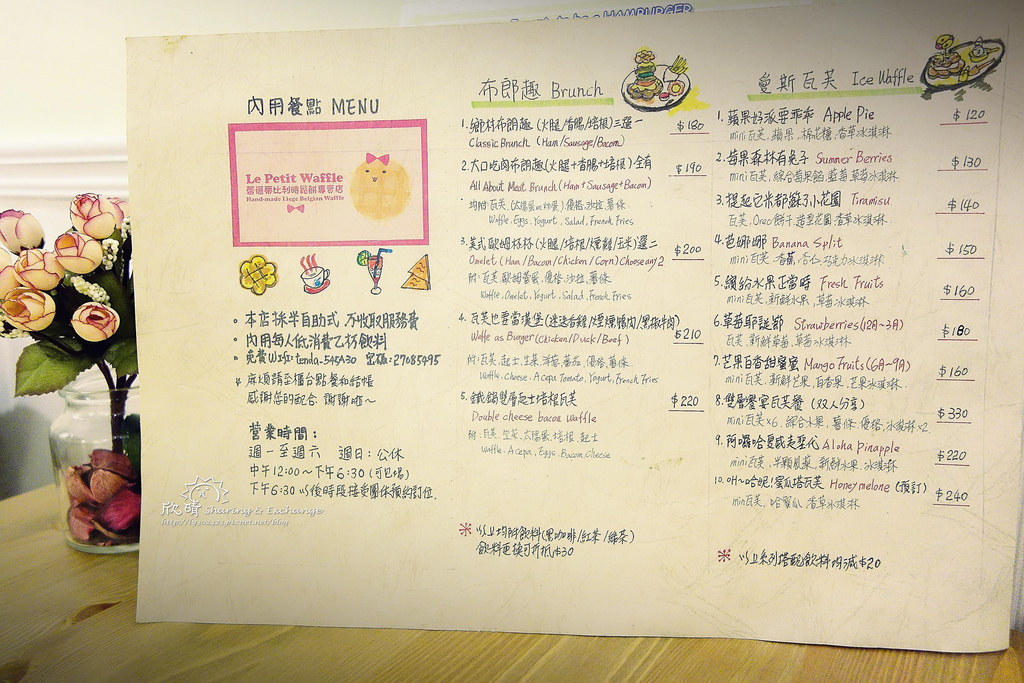 HAMBURGER
內用餐點 MENU
Le Petit Waffle
Hand-made Liege Belgian Waffle
• 本店採半自助式, 不收取服務費
• 內用每人低消費乙杯飲料
• 免費 Wifi: tenda-545A30 密碼: 27085495
麻煩請至櫃台點餐和結帳
感謝您的配合 謝謝啦~
營業時間:
週一至週六 週日: 公休
中午12:00~下午6:30 (可包場)
下午6:30 以後時段接受團体預約訂位.
欣晴 Sharing & Exchange
布郎趣 Brunch
1. 鄉村布朗趣 (火腿/香腸/培根) 三選一 $180
Classic Brunch (Ham/Sausage/Bacon)
2. 大口吃肉布朗趣 (火腿+香腸+培根) 全有 $190
All About Meat Brunch (Ham+Sausage+Bacon)
均附: 瓦芙. 優格. 沙拉. 薯條
Waffle. Eggs. Yogurt. Salad. French Fries
3. 美式歐姆杯杯 (火腿/培根/燻雞/玉米) 選二 $200
Omelet (Ham/Bacon/Chicken/Corn) Choose any 2
附: 瓦芙. 歐姆蛋捲. 優格. 沙拉. 薯條
Waffle. Omelet. Yogurt. Salad. French Fries
4. 瓦芙也要當漢堡 (迷迭香雞/煙燻鴨肉/黑椒牛肉) $210
Waffle as Burger (Chicken/Duck/Beef)
附: 瓦芙. 起士. 生菜. 洋蔥. 蕃茄. 優格. 薯條
Waffle. Cheese. A cepa Tomato. Yogurt. French Fries
5. 鐵鍋雙層起士培根瓦芙 $220
Double cheese bacon waffle
附: 瓦芙. 生菜. 太陽蛋. 培根. 起士
Waffle. A cepa. Eggs. Bacon. Cheese
※ 以上均附飲料 (黑咖啡/紅茶/綠茶)
飲料更換可折抵$30
曼斯瓦芙 Ice Waffle
1. 蘋果好派要乖乖 Apple Pie $120
mini瓦芙. 蘋果. 棉花糖. 香草冰淇淋
2. 莓果森林有兔子 Summer Berries $130
mini瓦芙. 綜合莓果餡. 藍莓. 草莓冰淇淋
3. 提起它米都蘇了小花園 Tiramisu $140
瓦芙. Oreo餅干. 造型花園. 香草冰淇淋
4. 芭娜娜 Banana Split $150
mini瓦芙. 香蕉. 杏仁. 巧克力冰淇淋
5. 繽紛水果正當時 Fresh Fruits $160
mini瓦芙. 新鮮水果. 草莓冰淇淋
6. 草莓耶誕節 Strawberries (12月~3月) $180
瓦芙. 新鮮草莓. 草莓冰淇淋
7. 芒果百香甜蜜蜜 Mango Fruits (6月~9月) $160
mini瓦芙. 新鮮芒果. 百香果. 芒果冰淇淋.
8. 雙層饗宴瓦芙餐 (双人分享) $330
mini瓦芙×6. 綜合水果. 薯條. 優格. 冰淇淋×2
9. 阿囉哈夏威夷 Aloha Pinapple $220
mini瓦芙. 半顆鳳梨. 新鮮水果. 冰淇淋
10. 呷~哈呢! 蜜瓜塔瓦芙 Honey melone (預訂) $240
mini瓦芙. 哈蜜瓜. 香草冰淇淋
※ 以上系列搭配飲料內減$20